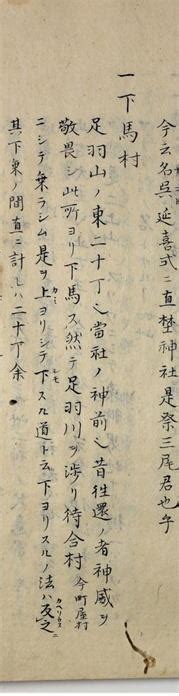 今云名呉延喜式ニ直埜神社是祭三尾君也乎
一下馬村
足羽山ノ東二十丁也當社ノ神前也昔往還ノ者神威ヲ
敬畏シ此所ヨリ下馬ス然テ足羽川ヲ渉リ待合村今町屋村
ニシテ乗ラシム是ヲ上ヨリシテ下スル道ト云下ヨリスルノ法ハ反之
其下乗ノ間直ニ計レハ二十丁余